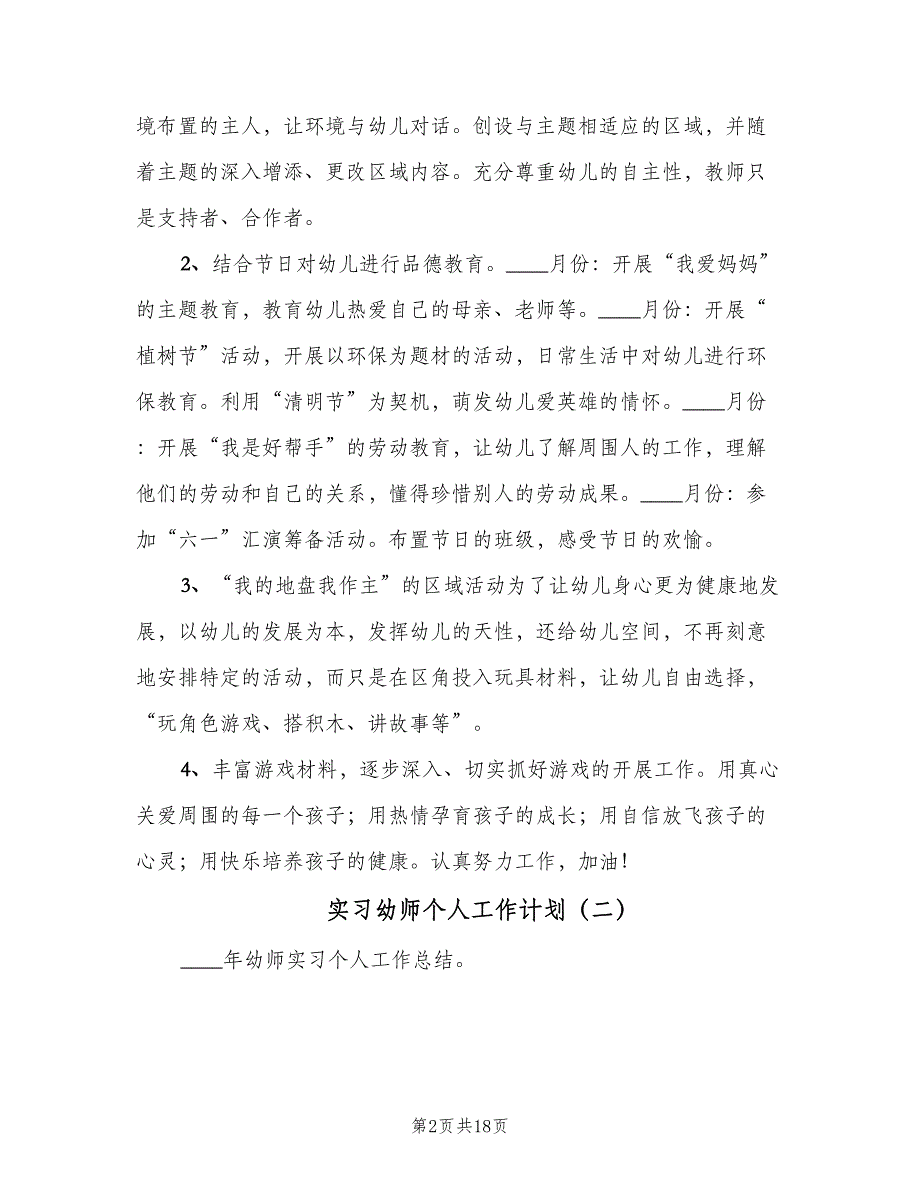 境布置的主人，让环境与幼儿对话。创设与主题相适应的区域，并随
着主题的深入增添、更改区域内容。充分尊重幼儿的自主性，教师只
是支持者、合作者。
2、结合节日对幼儿进行品德教育。____月份：开展“我爱妈妈”
的主题教育，教育幼儿热爱自己的母亲、老师等。____月份：开展“
植树节”活动，开展以环保为题材的活动，日常生活中对幼儿进行环
保教育。利用“清明节”为契机，萌发幼儿爱英雄的情怀。____月份
：开展“我是好帮手”的劳动教育，让幼儿了解周围人的工作，理解
他们的劳动和自己的关系，懂得珍惜别人的劳动成果。____月份：参
加“六一”汇演筹备活动。布置节日的班级，感受节日的欢愉。
3、“我的地盘我作主”的区域活动为了让幼儿身心更为健康地发
展，以幼儿的发展为本，发挥幼儿的天性，还给幼儿空间，不再刻意
地安排特定的活动，而只是在区角投入玩具材料，让幼儿自由选择，
“玩角色游戏、搭积木、讲故事等”。
4、丰富游戏材料，逐步深入、切实抓好游戏的开展工作。用真心
关爱周围的每一个孩子；用热情孕育孩子的成长；用自信放飞孩子的
心灵；用快乐培养孩子的健康。认真努力工作，加油！
实习幼师个人工作计划（二）
____年幼师实习个人工作总结。
第2页共18页